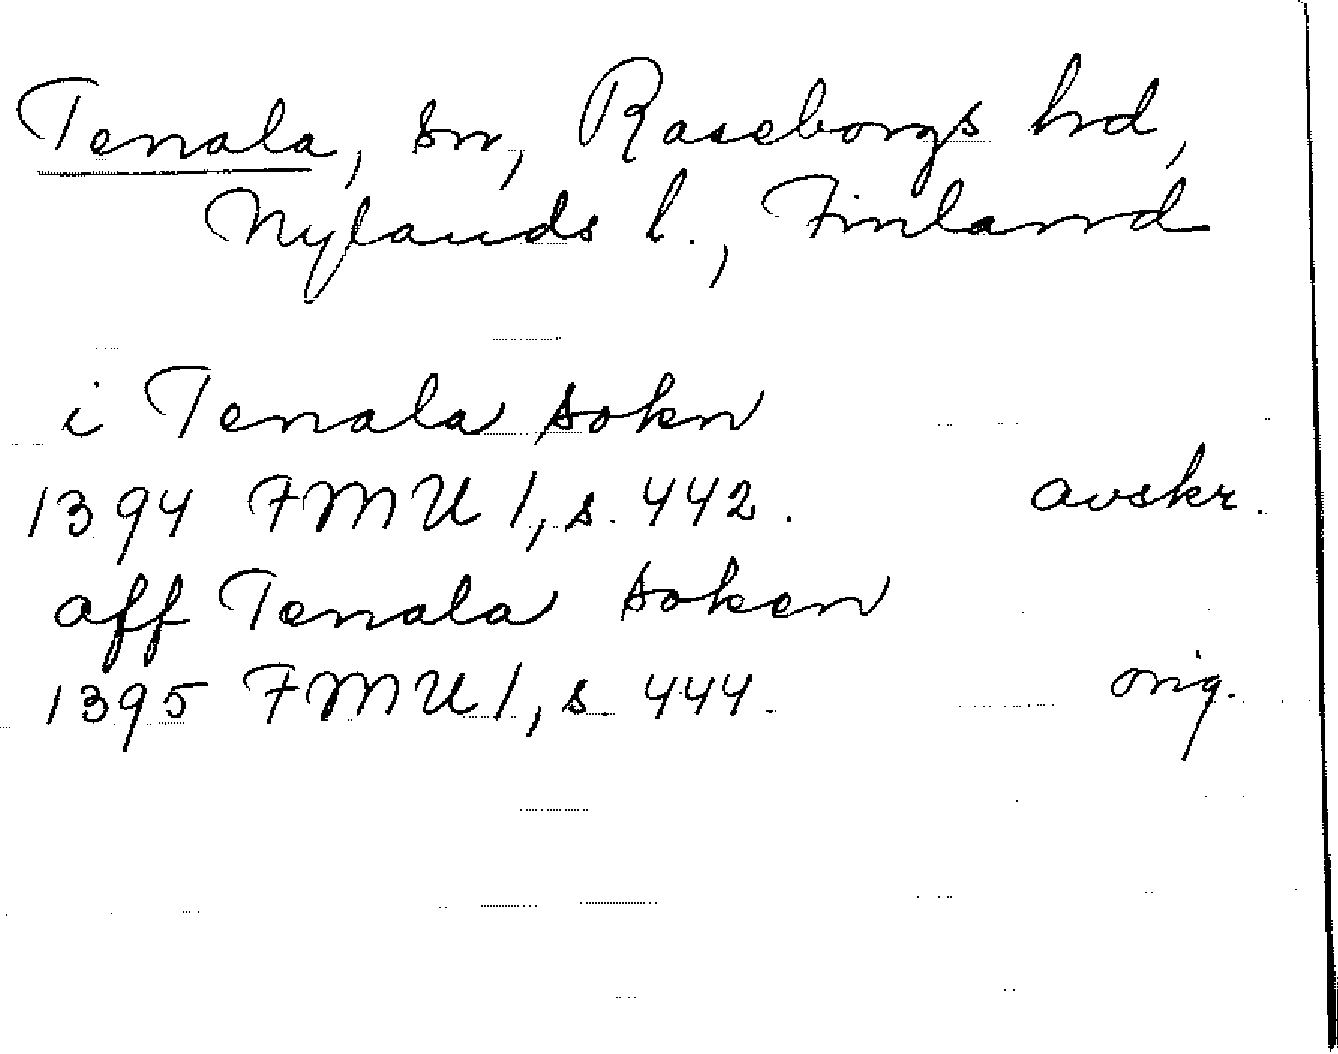 Tenala, sn, Raseborgs hd,
Nylands l., Finland
i Tenala sokn
1394 FMU 1, s. 442. avskr.
aff Tenala soken
1395 FMU 1, s. 444. orig.